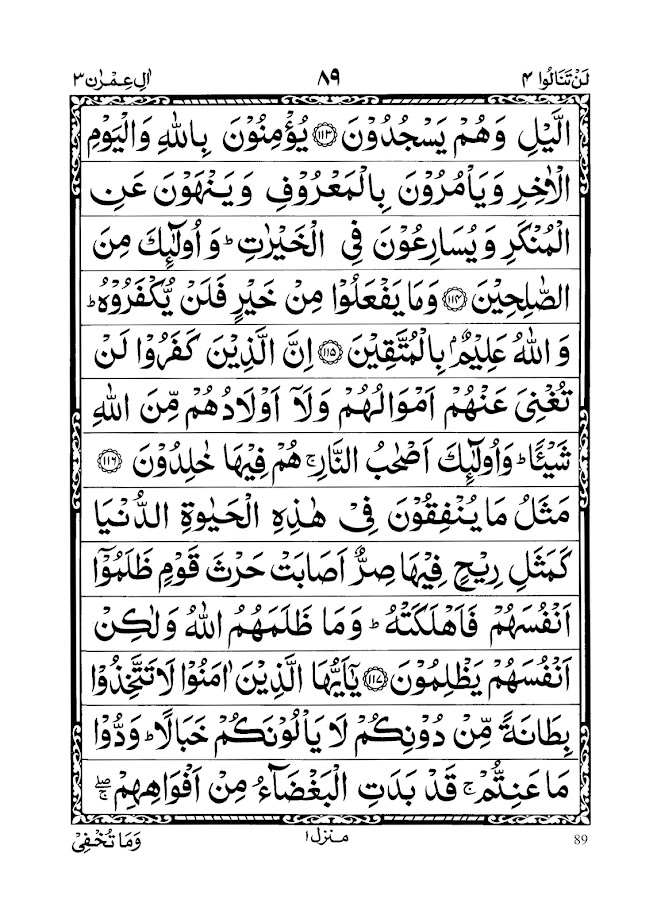 لَنْ تَنَالُوا ۴ ۸۹ اٰلِ عِمْرٰن ۳
الَّيْلِ وَهُمْ يَسْجُدُوْنَ ﴿۱۱۳﴾ يُؤْمِنُوْنَ بِاللّٰهِ وَالْيَوْمِ
الْاٰخِرِ وَيَاْمُرُوْنَ بِالْمَعْرُوْفِ وَيَنْهَوْنَ عَنِ
الْمُنْكَرِ وَيُسَارِعُوْنَ فِي الْخَيْرٰتِ ؕ وَاُولٰٓئِكَ مِنَ
الصّٰلِحِيْنَ ﴿۱۱۴﴾ وَمَا يَفْعَلُوْا مِنْ خَيْرٍ فَلَنْ يُّكْفَرُوْهُ ؕ
وَاللّٰهُ عَلِيْمٌۢ بِالْمُتَّقِيْنَ ﴿۱۱۵﴾ اِنَّ الَّذِيْنَ كَفَرُوْا لَنْ
تُغْنِيَ عَنْهُمْ اَمْوَالُهُمْ وَلَاۤ اَوْلَادُهُمْ مِّنَ اللّٰهِ
شَيْـًٔا ؕ وَاُولٰٓئِكَ اَصْحٰبُ النَّارِ ۚ هُمْ فِيْهَا خٰلِدُوْنَ ﴿۱۱۶﴾
مَثَلُ مَا يُنْفِقُوْنَ فِيْ هٰذِهِ الْحَيٰوةِ الدُّنْيَا
كَمَثَلِ رِيْحٍ فِيْهَا صِرٌّ اَصَابَتْ حَرْثَ قَوْمٍ ظَلَمُوْۤا
اَنْفُسَهُمْ فَاَهْلَكَتْهُ ؕ وَمَا ظَلَمَهُمُ اللّٰهُ وَلٰكِنْ
اَنْفُسَهُمْ يَظْلِمُوْنَ ﴿۱۱۷﴾ يٰۤاَيُّهَا الَّذِيْنَ اٰمَنُوْا لَا تَتَّخِذُوْا
بِطَانَةً مِّنْ دُوْنِكُمْ لَا يَاْلُوْنَكُمْ خَبَالًا ؕ وَدُّوْا
مَا عَنِتُّمْ ۚ قَدْ بَدَتِ الْبَغْضَآءُ مِنْ اَفْوَاهِهِمْ ۖۚ
89 منزل ۱ وَمَا تُخْفِيْ